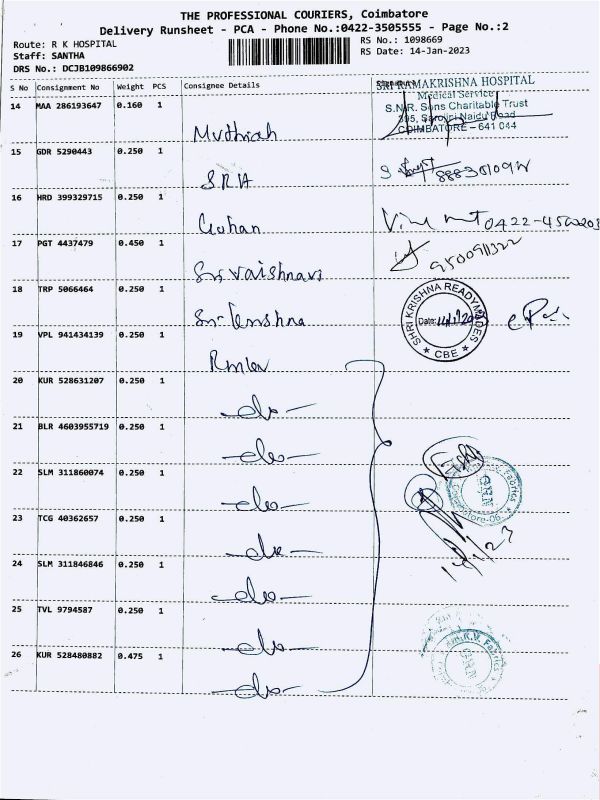 THE PROFESSIONAL COURIERS, Coimbatore
Delivery Runsheet - PCA - Phone No.:0422-3505555 - Page No.:2
Route: R K HOSPITAL
RS No.: 1098669
Staff: SANTHA
RS Date: 14-Jan-2023
DRS No.: DCJB109866902
S No Consignment No Weight PCS Consignee Details
SRI RAMAKRISHNA HOSPITAL
Medical Service
S.N.R. Sons Charitable Trust
395, Sarojini Naidu Road
COIMBATORE - 641 044
14 MAA 286193647 0.160 1
Muthiah
15 GDR 5290443 0.250 1
16 HRD 399329715 0.250 1
Guhan
17 PGT 4437479 0.450 1
9500911322
Sri Vaishnavi
18 TRP 5066464 0.250 1
Sri Krishna
SHRI KRISHNA READYMADES
Date:
★ CBE ★
19 VPL 941434139 0.250 1
20 KUR 528631207 0.250 1
-do-
21 BLR 4603955719 0.250 1
-do-
22 SLM 311860074 0.250 1
-do-
23 TCG 40362657 0.250 1
-do-
24 SLM 311846846 0.250 1
-do-
25 TVL 9794587 0.250 1
-do-
26 KUR 528480882 0.475 1
-do-